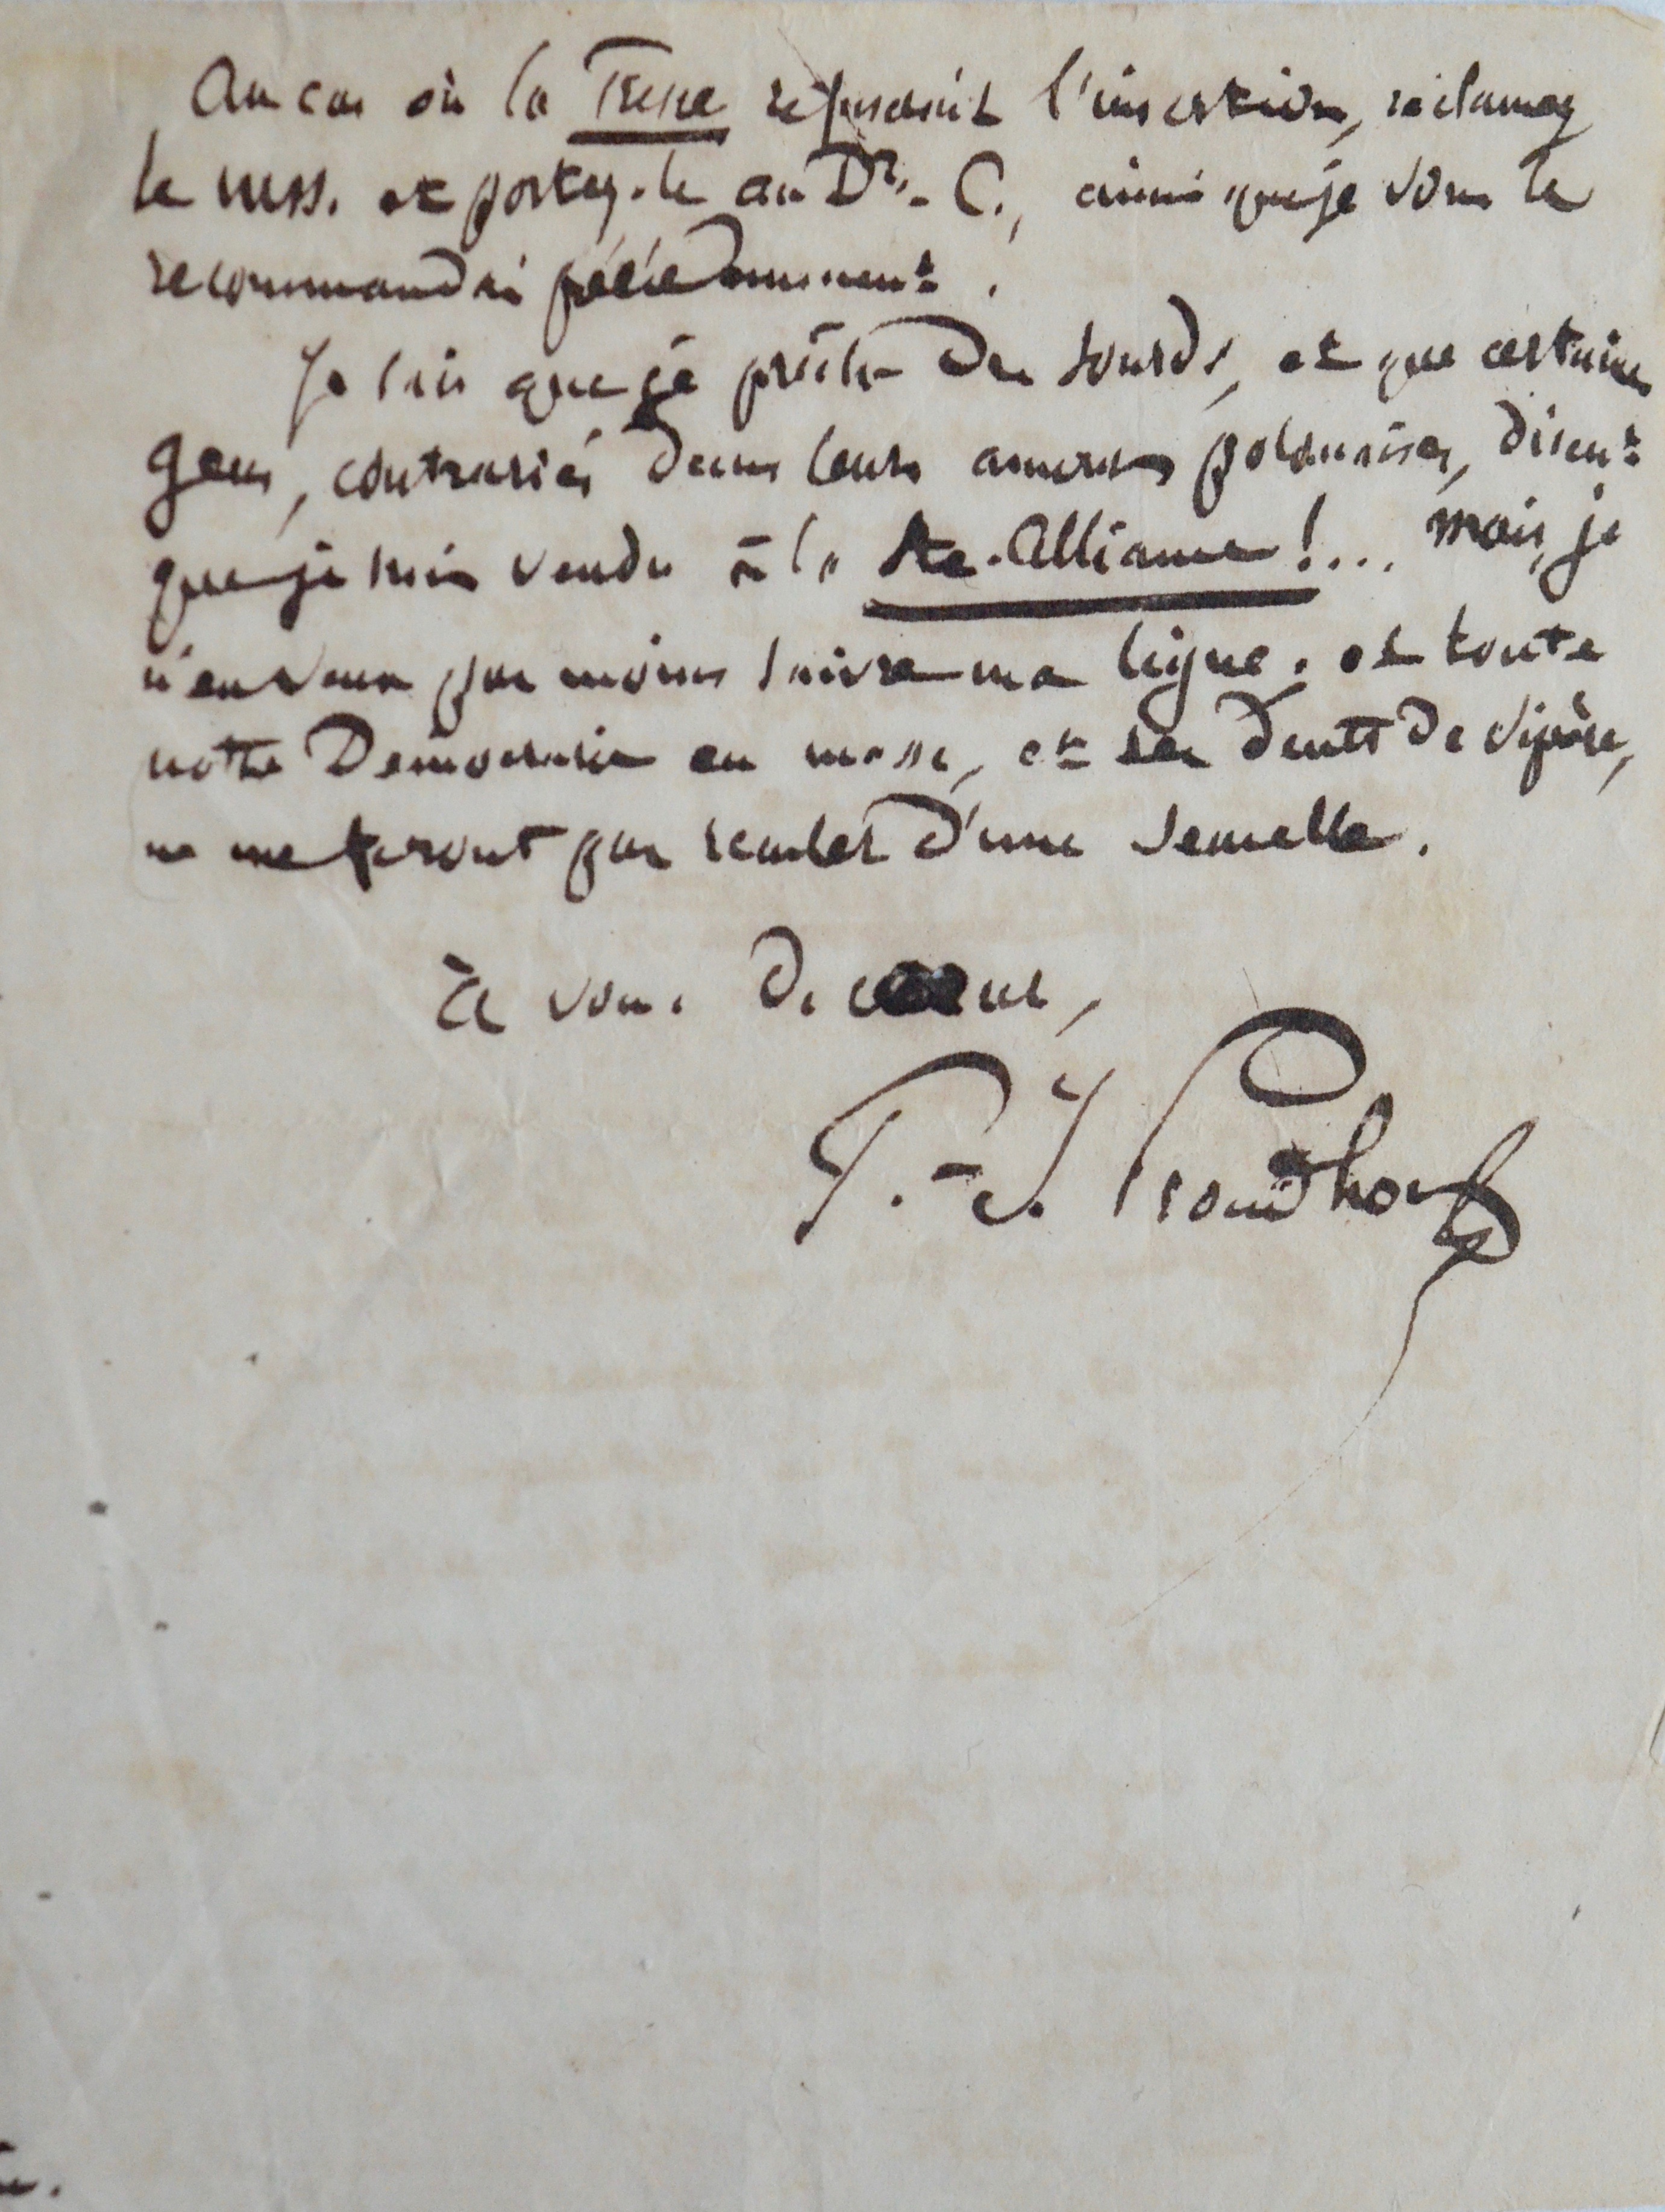 Au cas où la Presse refuserait l'insertion, réclamez
le mss. et portez-le au Dr. C., ainsi que je vous le
recommandai précédemment.
Je sais que je prêche des sourds, et que certaines
gens, contrariés dans leurs amours polonaises, disent
que je suis vendu à la Ste-Alliance!... mais, je
n'en veux pas moins suivre ma ligne; et toute
notre Démocratie en masse, et ses dents de vipère,
ne me feront pas reculer d'une semelle.
à vous de cœur,
P.-J. Proudhon